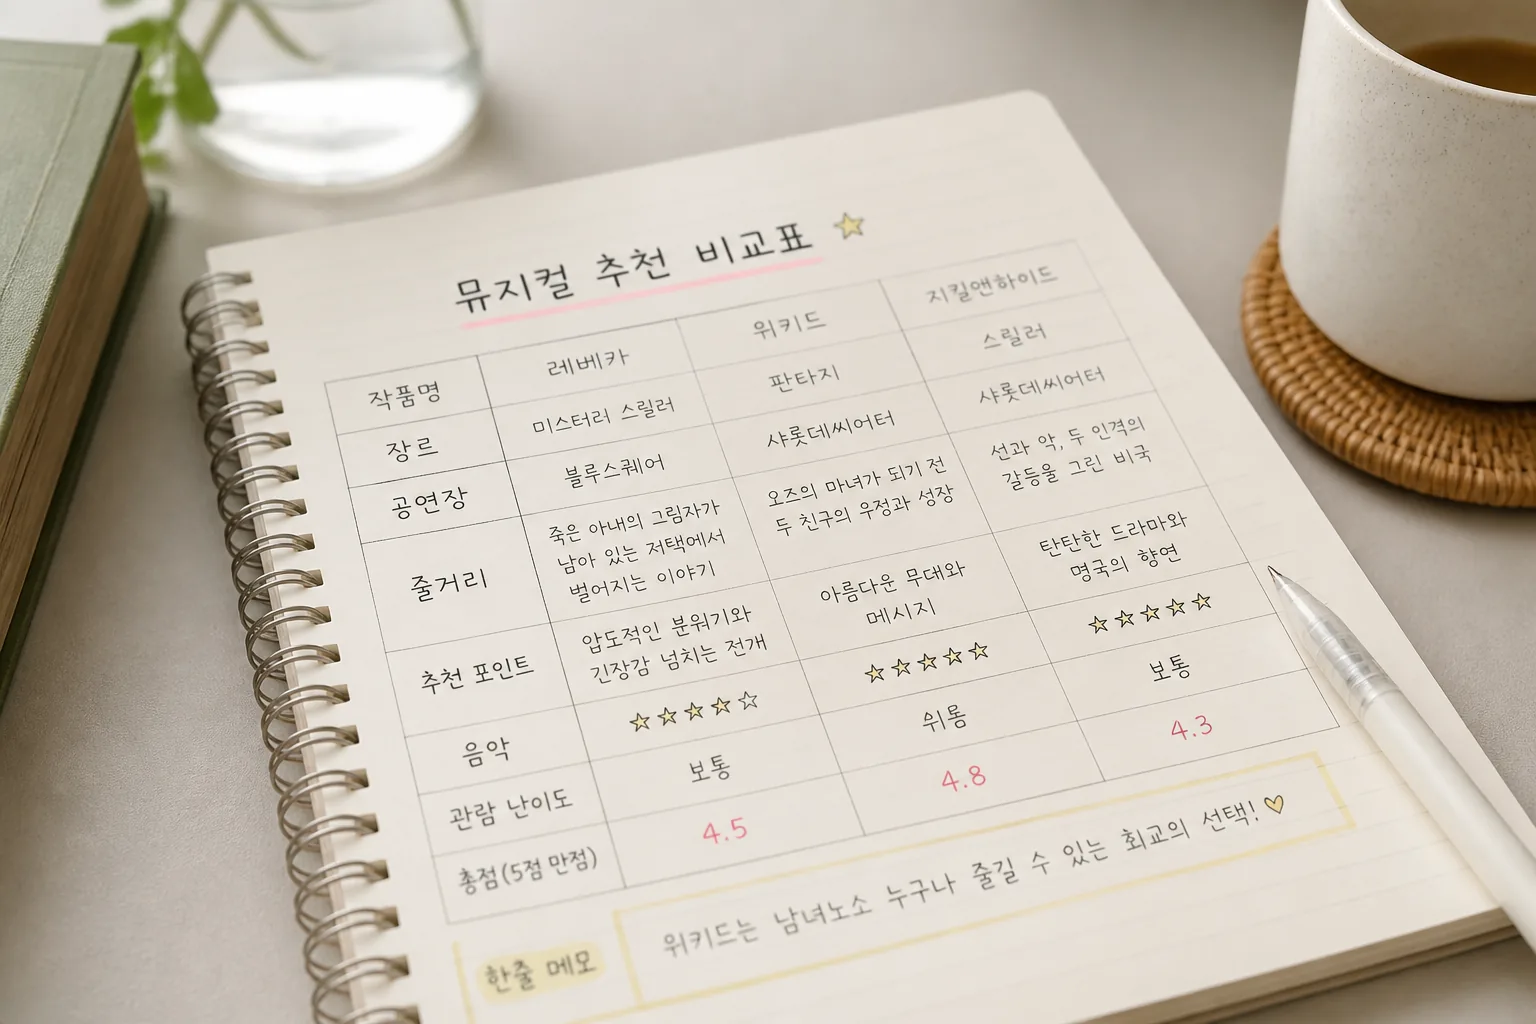 뮤지컬 추천 비교표
작품명 레베카 위키드 지킬앤하이드
장르 미스터리 스릴러 판타지 스릴러
공연장 블루스퀘어 샤롯데씨어터 샤롯데씨어터
줄거리
죽은 아내의 그림자가
남아 있는 저택에서
벌어지는 이야기
오즈의 마녀가 되기 전
두 친구의 우정과 성장
선과 악, 두 인격의
갈등을 그린 비국
추천 포인트
압도적인 분위기와
긴장감 넘치는 전개
아름다운 무대와
메시지
탄탄한 드라마와
명국의 향연
음악 ★★★★☆ ★★★★★ ★★★★★
관람 난이도 보통 위롱 보통
총점(5점 만점) 4.5 4.8 4.3
한줄 메모
위키드는 남녀노소 누구나 줄길 수 있는 희교의 선택!